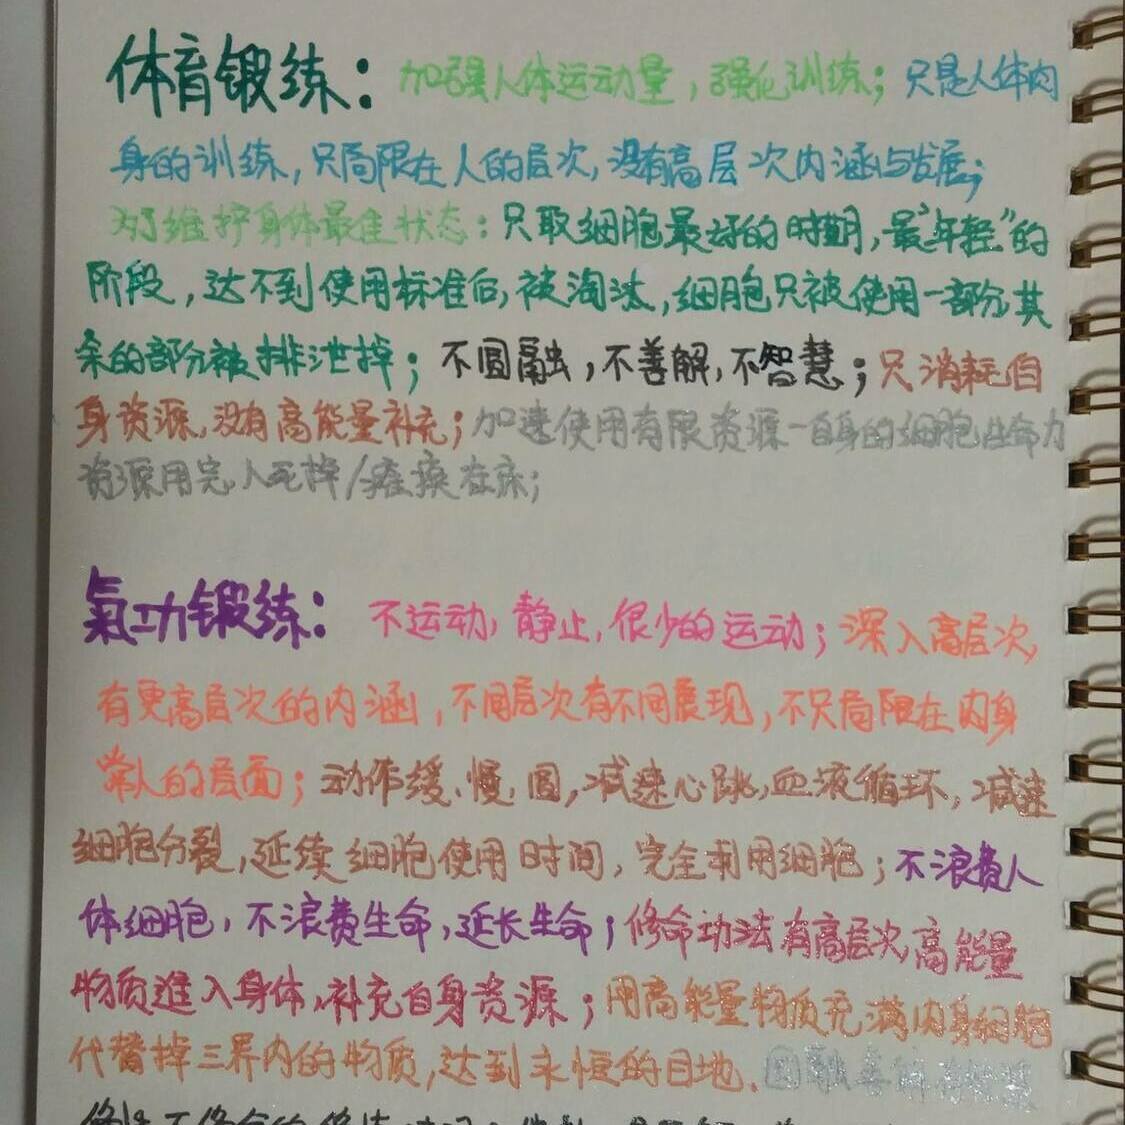 体育锻练：加强人体运动量，强化训练；只是人体肉
身的训练，只局限在人的层次，没有高层次内涵与发展；
为了维护身体最佳状态：只取细胞最好的时期，最"年轻"的
阶段，达不到使用标准后，被淘汰，细胞只被使用一部分其
余的部分被排泄掉；不圆融，不善解，不智慧；只消耗自
身资源，没有高能量补充；加速使用有限资源－自身的细胞生命力
资源用完人死掉/瘫痪在床；
氣功锻练：不运动，静止，很少的运动；深入高层次，
有更高层次的内涵，不同层次有不同展现，不只局限在肉身
常人的层面；动作缓、慢、圆，减速心跳，血液循环，减速
细胞分裂，延续细胞使用时间，完全利用细胞；不浪费人
体细胞，不浪费生命，延长生命；修命功法有高层次高能量
物质進入身体，补充自身资源；用高能量物质充满肉身细胞
代替掉三界内的物质，达到永恒的目地。圆融善解